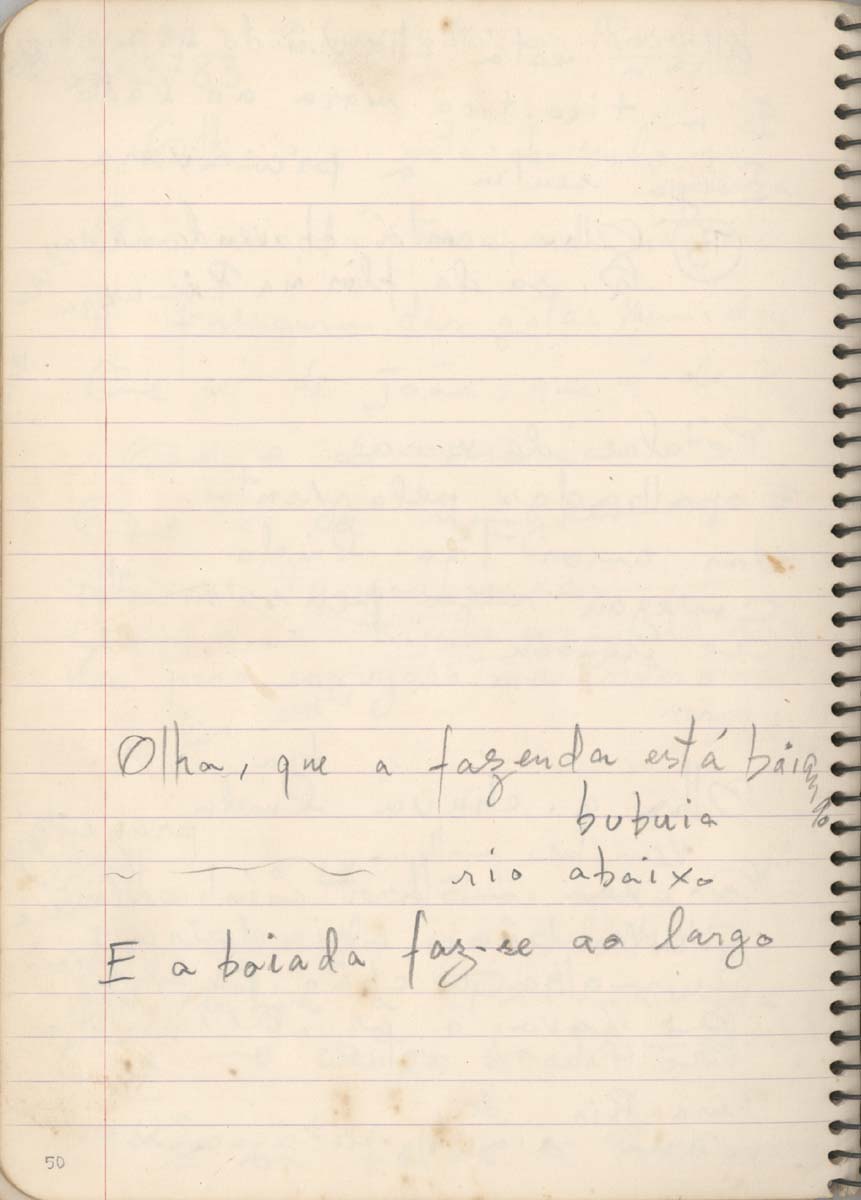 Olha, que a fazenda está boiando
bubuia
rio abaixo
E a boiada faz-se ao largo
50